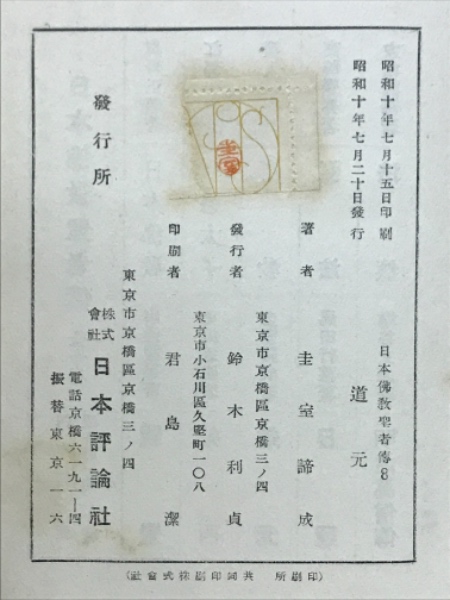 昭和十年七月十五日印刷
昭和十年七月二十日發行
日本佛敎聖者傳8
道元
著者 圭室諦成
東京市京橋區京橋三ノ四
發行者 鈴木利貞
東京市小石川區久堅町一〇八
印刷者 君島潔
東京市京橋區京橋三ノ四
發行所 株式會社 日本評論社
電話京橋六一九一―四
振替東京一六
(印刷所 共同印刷株式會社)
圭室